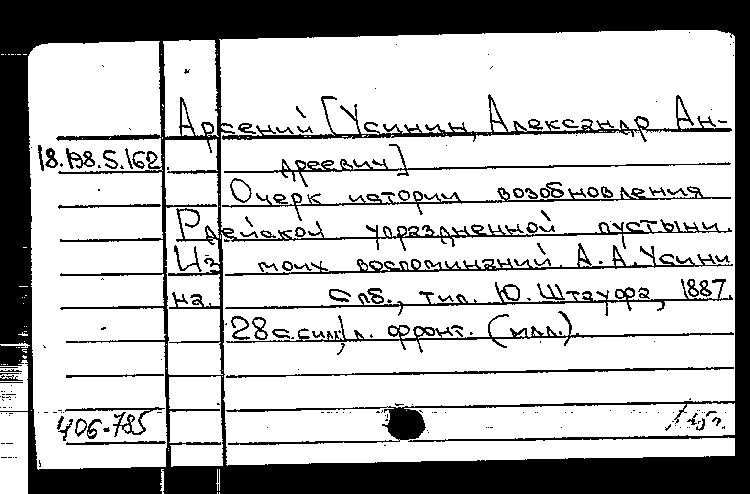 Арсений [Усинин, Александр Ан-
18.198.5.162 дреевич]
Очерк истории возобновления
Рдейской упраздненной пустыни.
Из моих воспоминаний А.А. Усини
на. Спб., тип. Ю. Штауфа, 1887.
28 с. с илл, 1 л. фронт. (илл.).
406-785